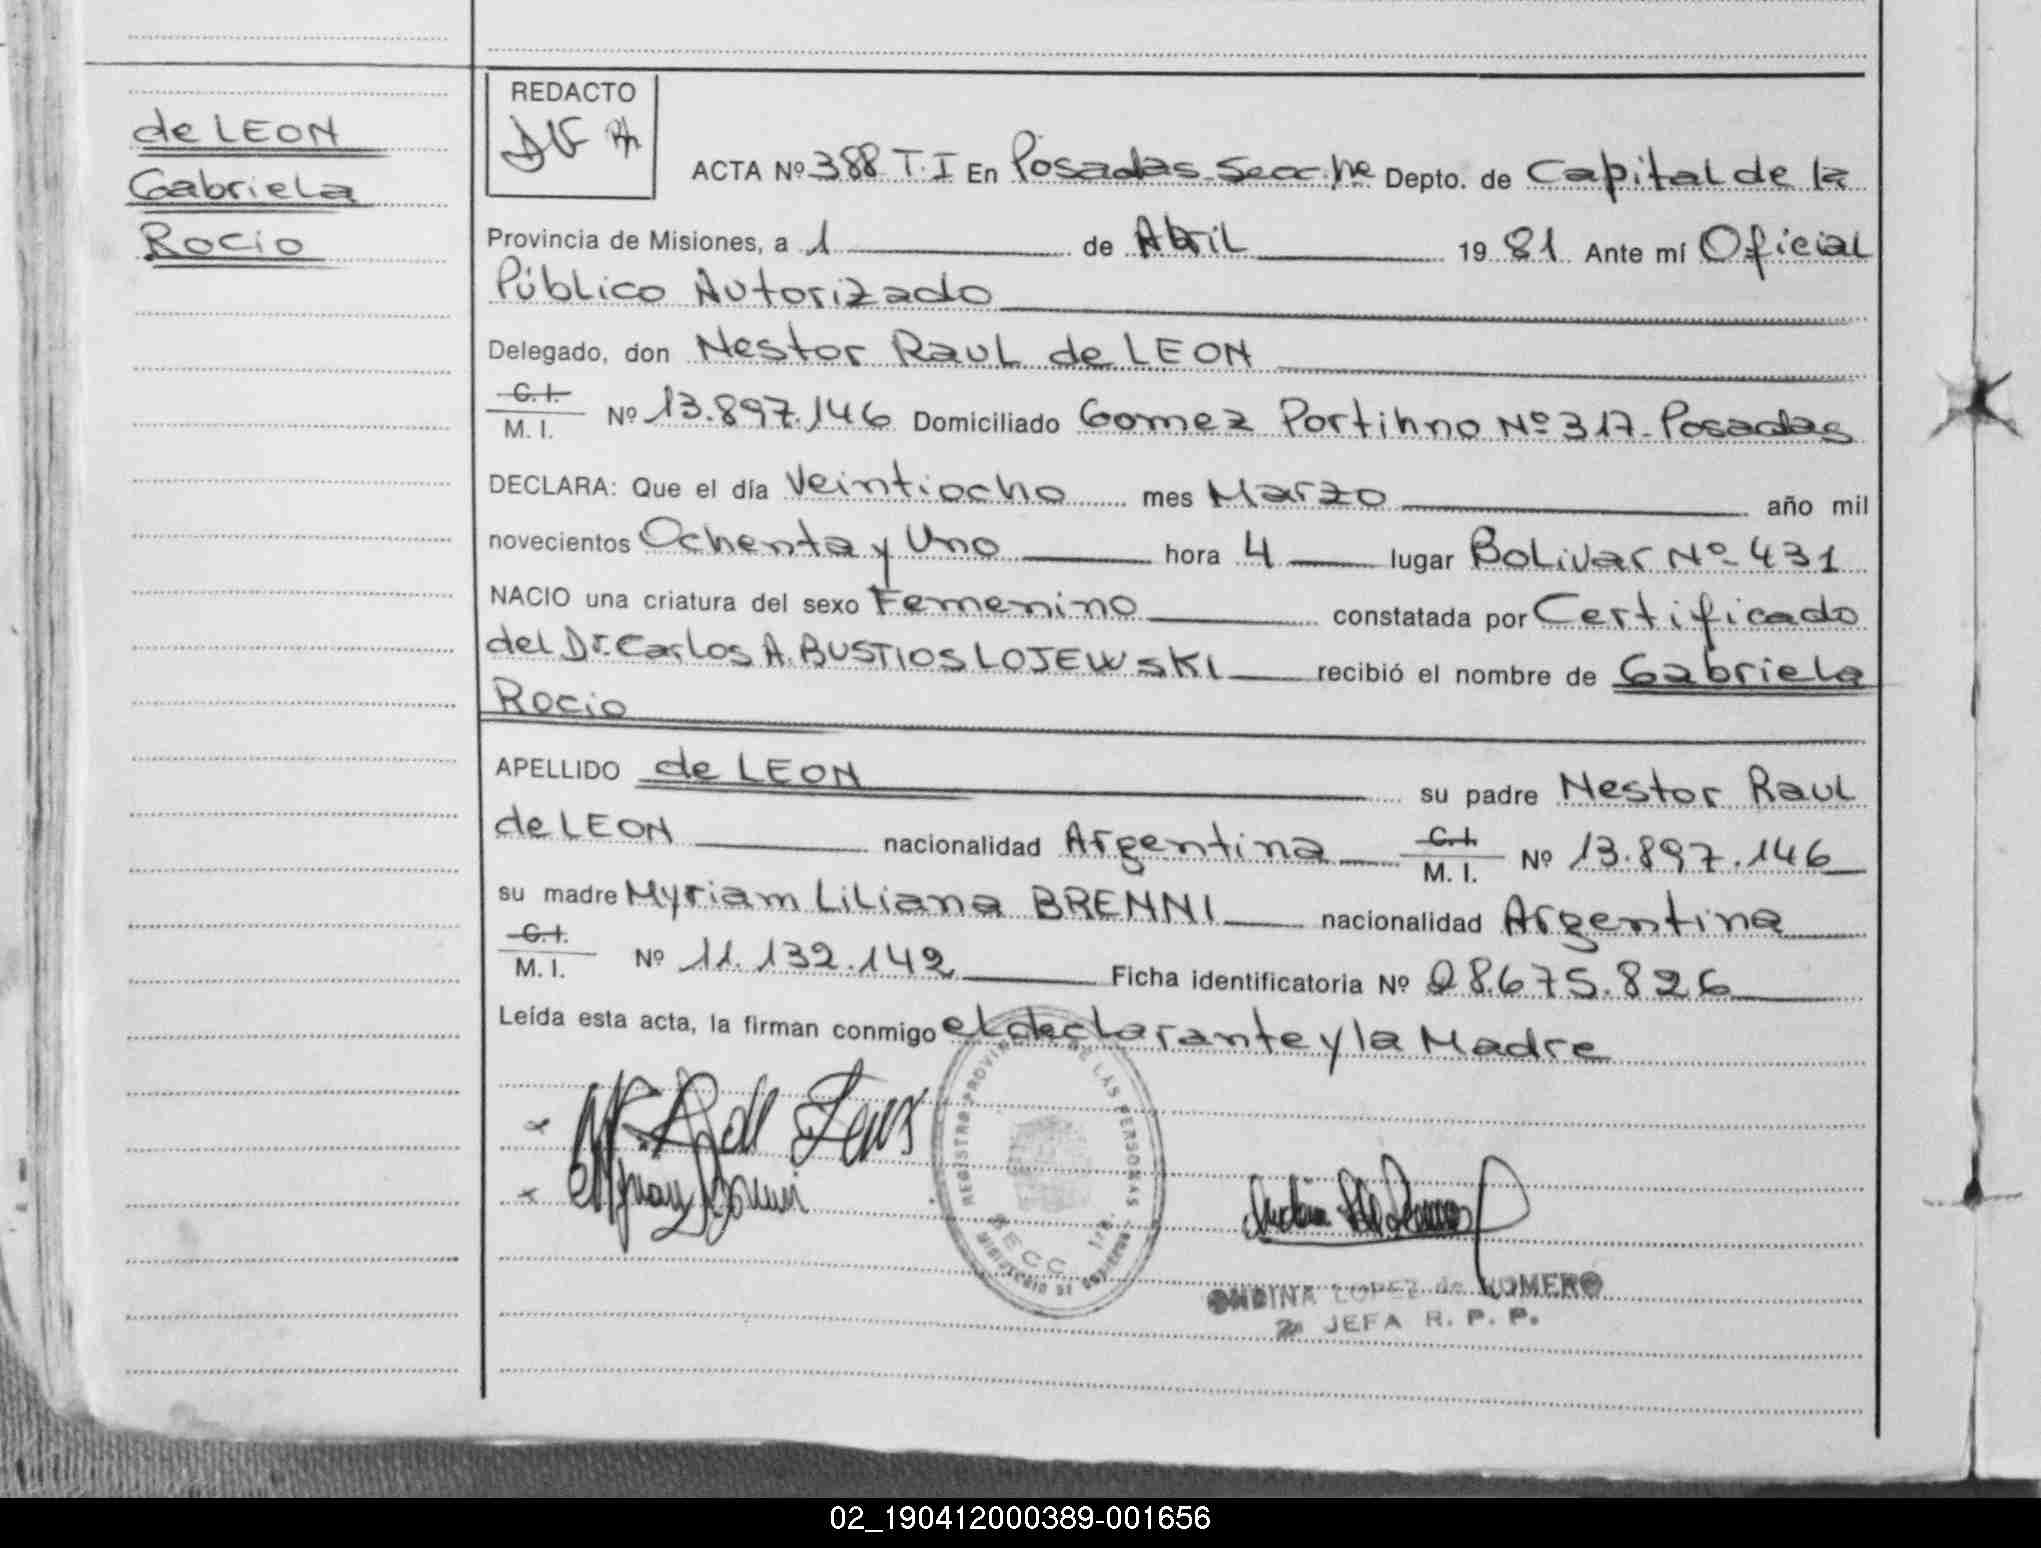 de LEON
Gabriela
Rocio
REDACTO
ACTA Nº 388 T.I En Posadas Secc. 1ra Depto. de Capital de la
Provincia de Misiones, a 1 de Abril 1981 Ante mí Oficial
Público Autorizado
Delegado, don Nestor Raul de LEON
C.I.
M. I. Nº 13.897.146 Domiciliado Gomez Portihno Nº 317. Posadas
DECLARA: Que el día Veintiocho mes Marzo año mil
novecientos Ochenta y Uno hora 4 lugar Bolivar Nº 431
NACIO una criatura del sexo Femenino constatada por Certificado
del Dr. Carlos A. BUSTIOS LOJEWSKI recibió el nombre de Gabriela
Rocio
APELLIDO de LEON su padre Nestor Raul
de LEON nacionalidad Argentina C.I. M. I. Nº 13.897.146
su madre Myriam Liliana BRENNI nacionalidad Argentina
C.I.
M. I. Nº 11.132.142 Ficha identificatoria Nº 28.675.826
Leída esta acta, la firman conmigo el declarante y la Madre
REGISTRO PROVINCIAL DE LAS PERSONAS
SECC. 1ra
MINISTERIO DE GOBIERNO
ONDINA LOPEZ de ROMERO
JEFA R. P. P.
02_190412000389-001656